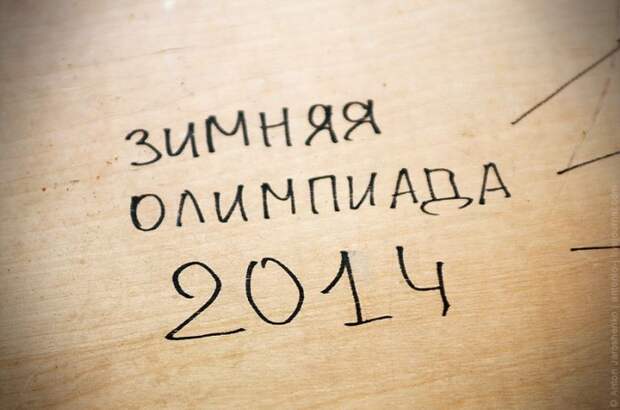 ЗИМНЯЯ
ОЛИМПИАДА
2014